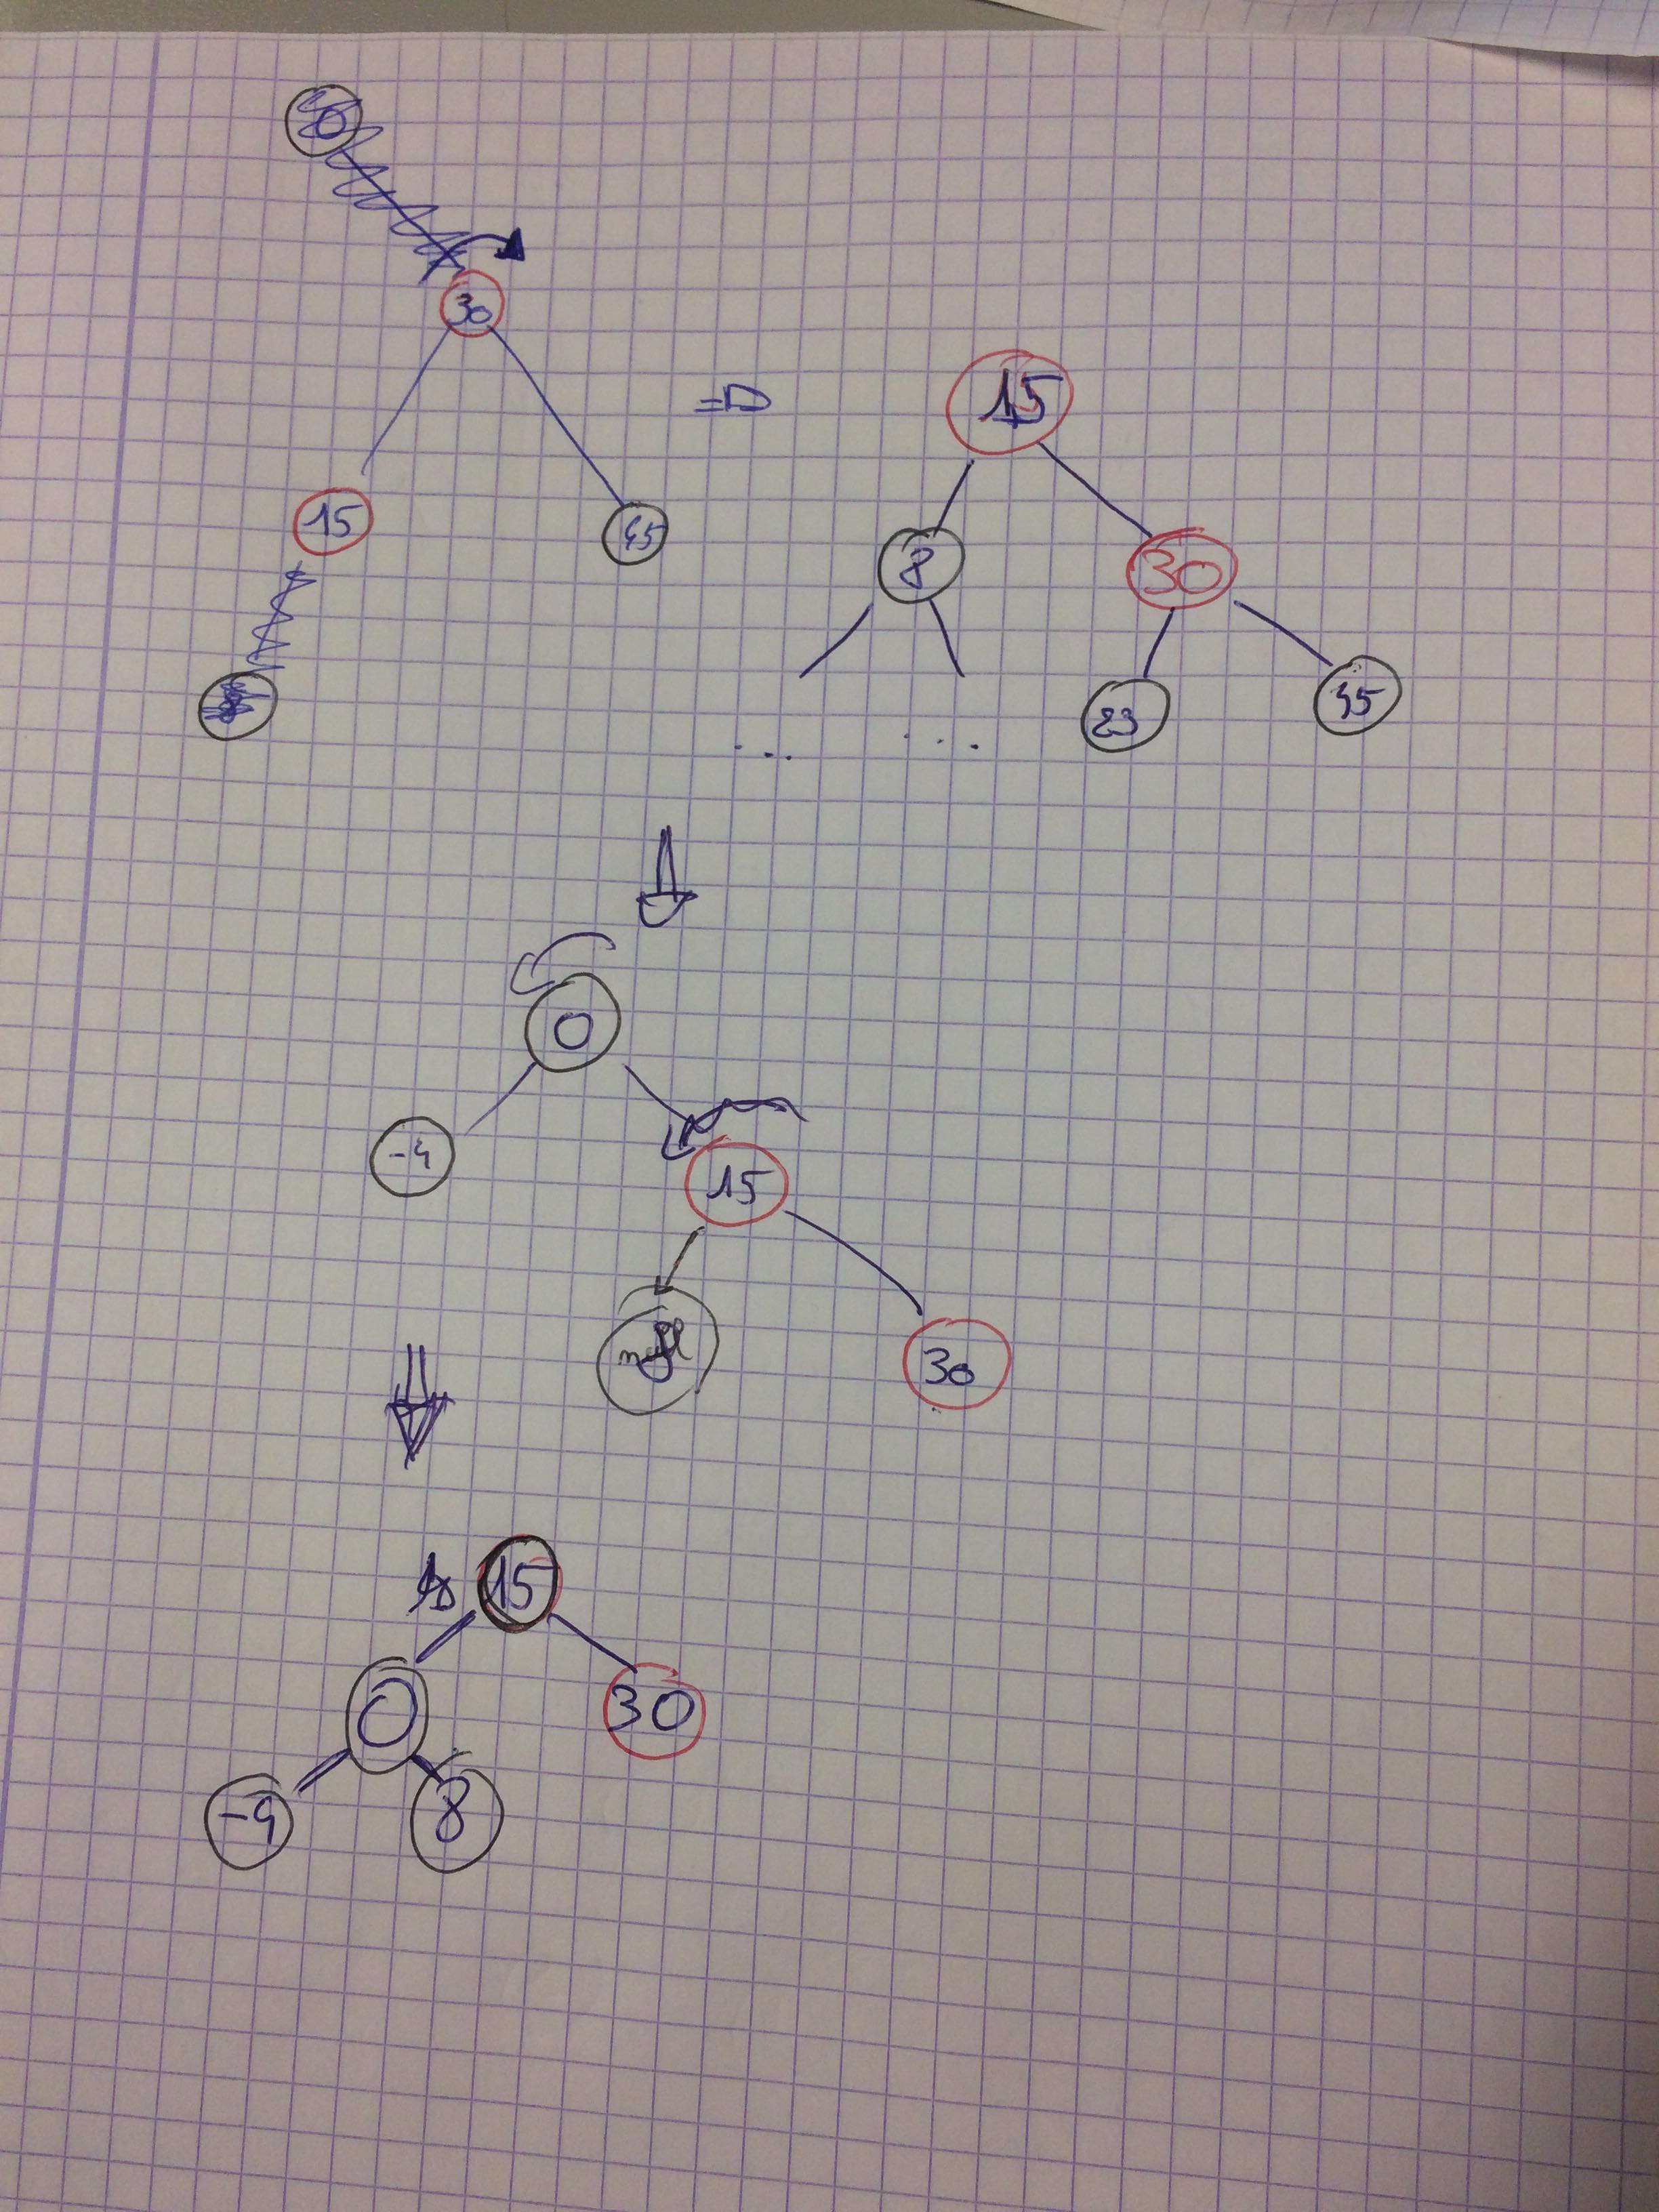 0
30
15
45
8
=>
15
8
30
23
45
... ...
0
-4
15
30
15
0
30
-4
8